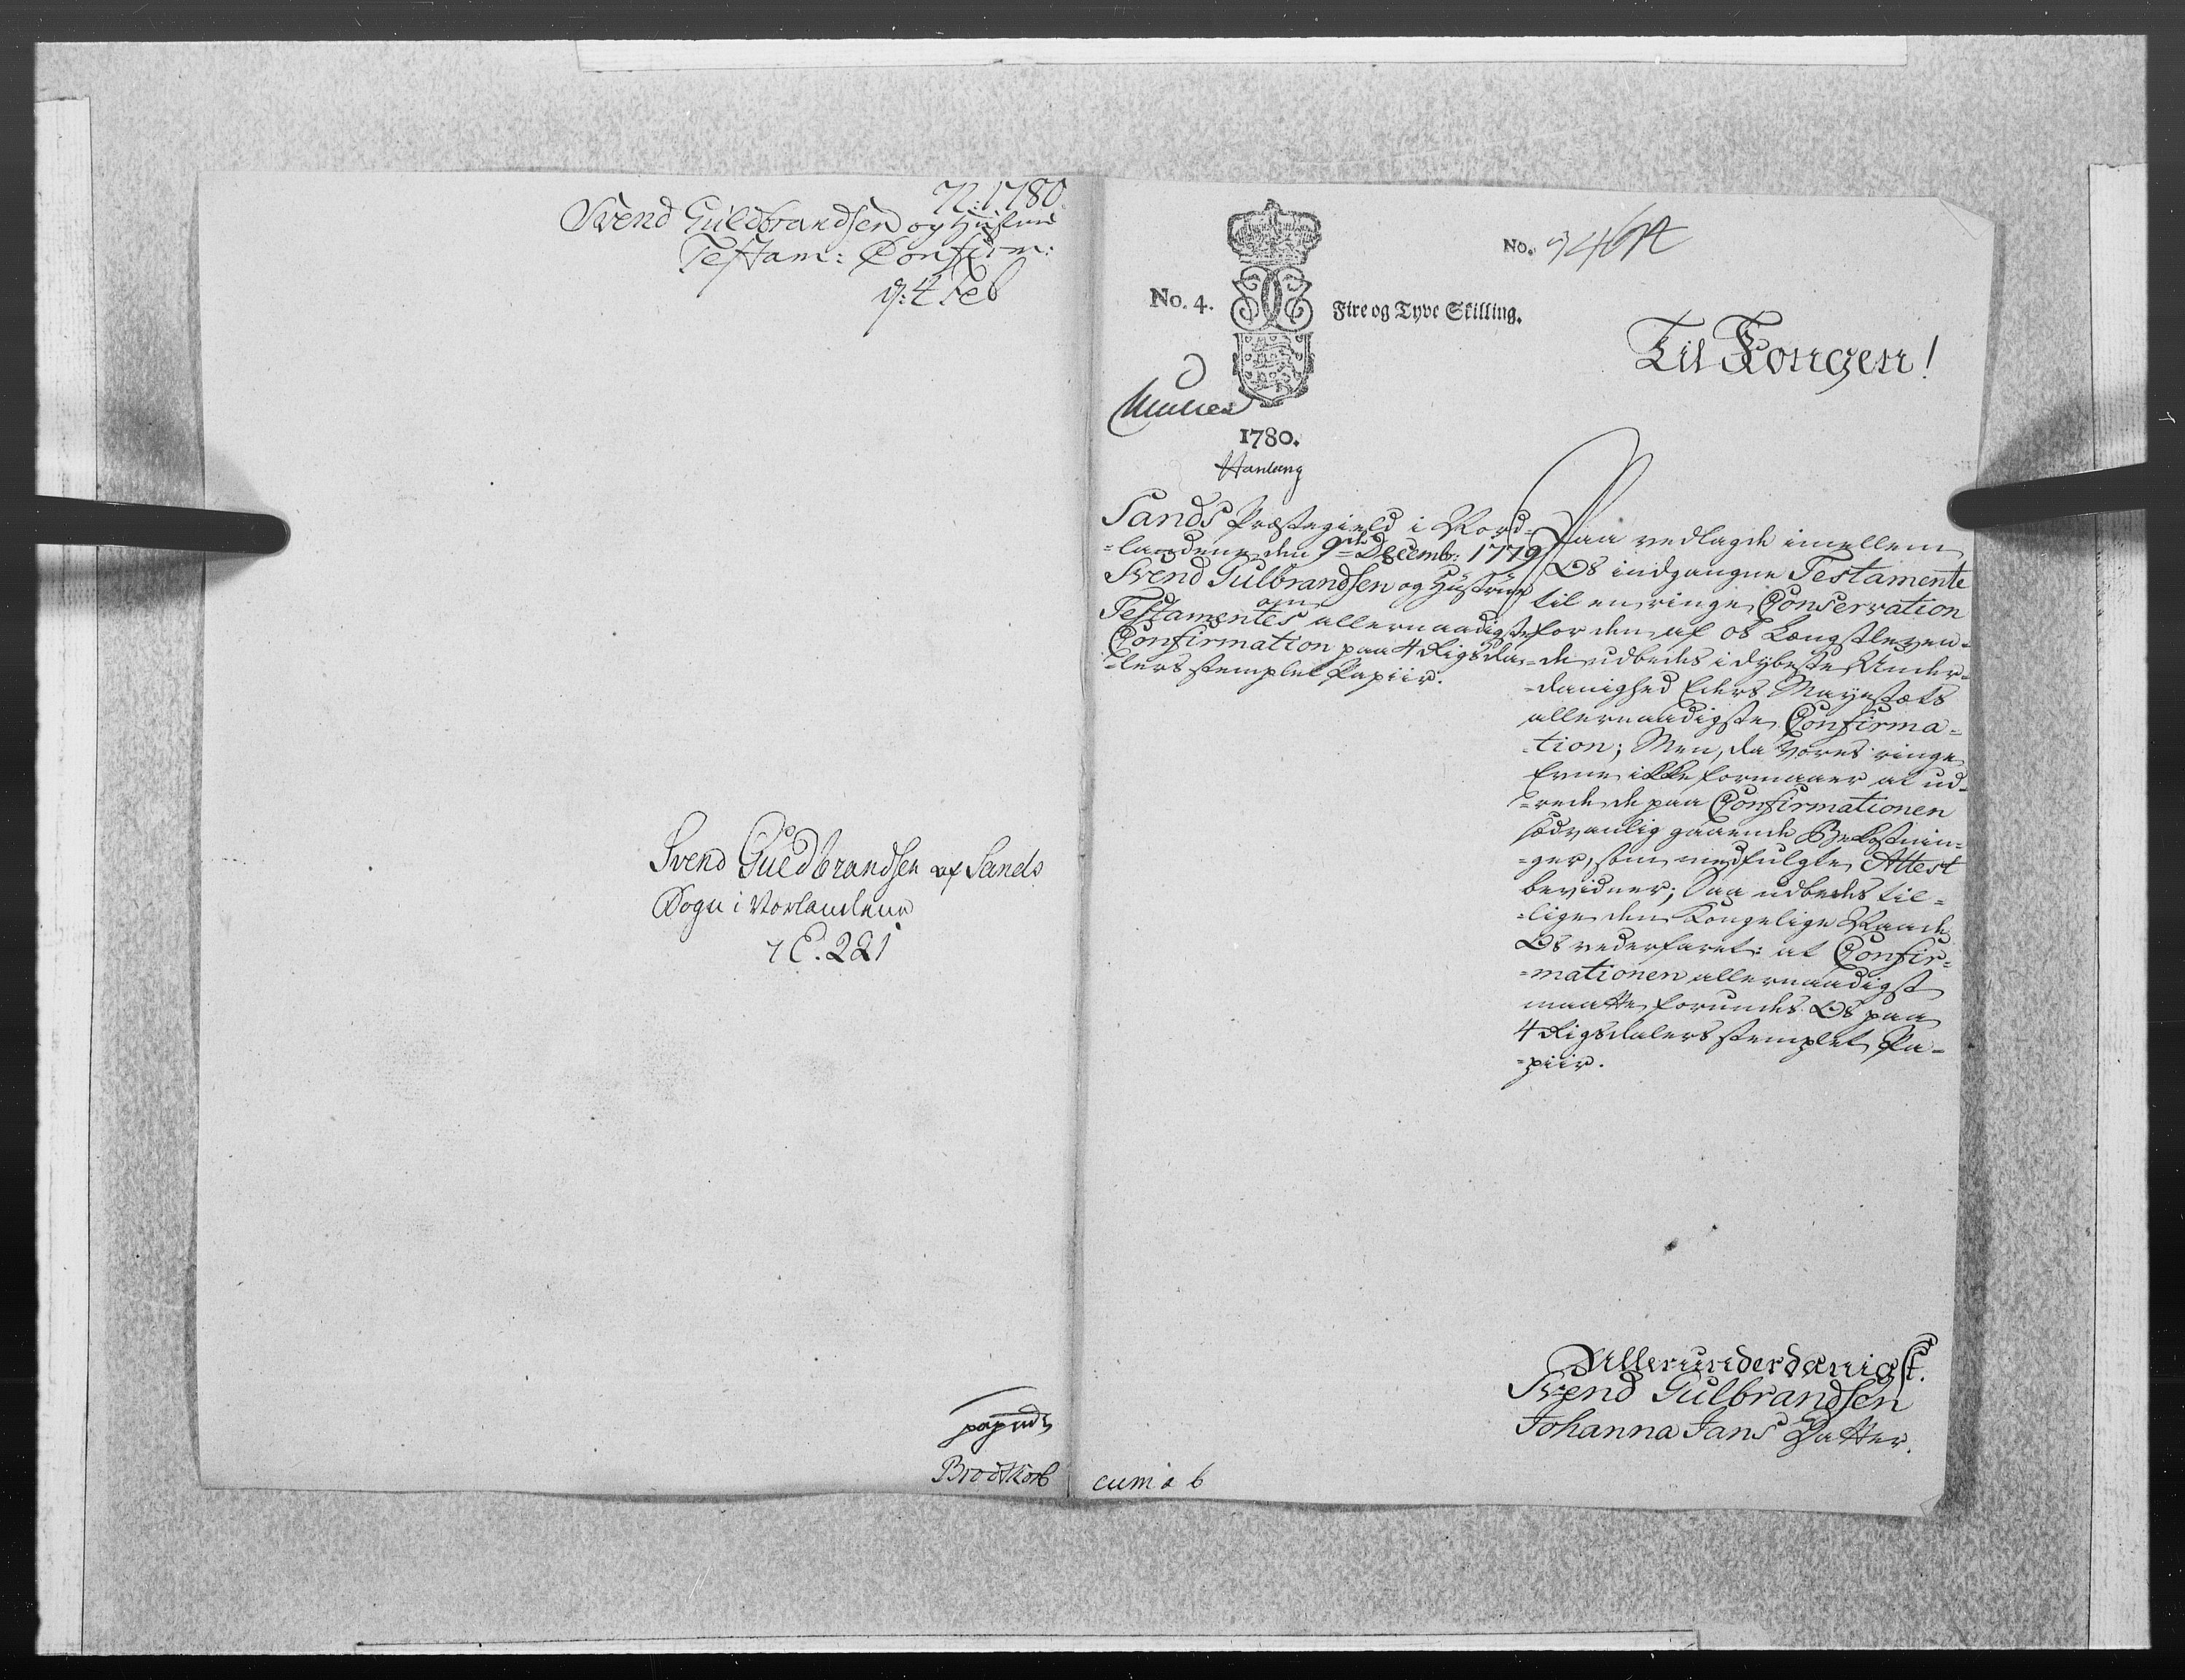 N: 1780.
Svend Guldbrandsen og Hustrue
Testam: Confirm:
d: 4 Feb
Svend Guldbrandsen af Sands
Sogn i Norlandene
E. 221
Brodtkorb
No. 4.
Fire og Tyve Skilling.
No.
Til Kongen!
1780.
Sands Præstegield i Nord-
-landene den 9de Decemb: 1779
Svend Gulbrandsen og Hustrue
om
Testamentes allernaadigste
Confirmation paa 4 Rigsda-
-lers stemplet Papiir.
Paa vedlagde imellem
Os indgangne Testamente
til en ringe Conservation
for den af os Længstleven-
-de udbedes i dybeste Under-
-danighed Eders Mayestæts
allernaadigste Confirma-
-tion; Men, da vores ringe
Evne ikke formaaer at ud-
-rede de paa Confirmationen
sædvanlig gaaende Bekostnin-
-ger, som medfulgte Attest
bevidner; Saa udbedes til-
-lige den Kongelige Naade
Os vederfaret: at Confir-
-mationen allernaadigst
maatte forundes Os paa
4 Rigsdalers stemplet Pa-
-piir.
Allerunderdanigst.
Svend Gulbrandsen
Johanna Jans Datter.
cum a b